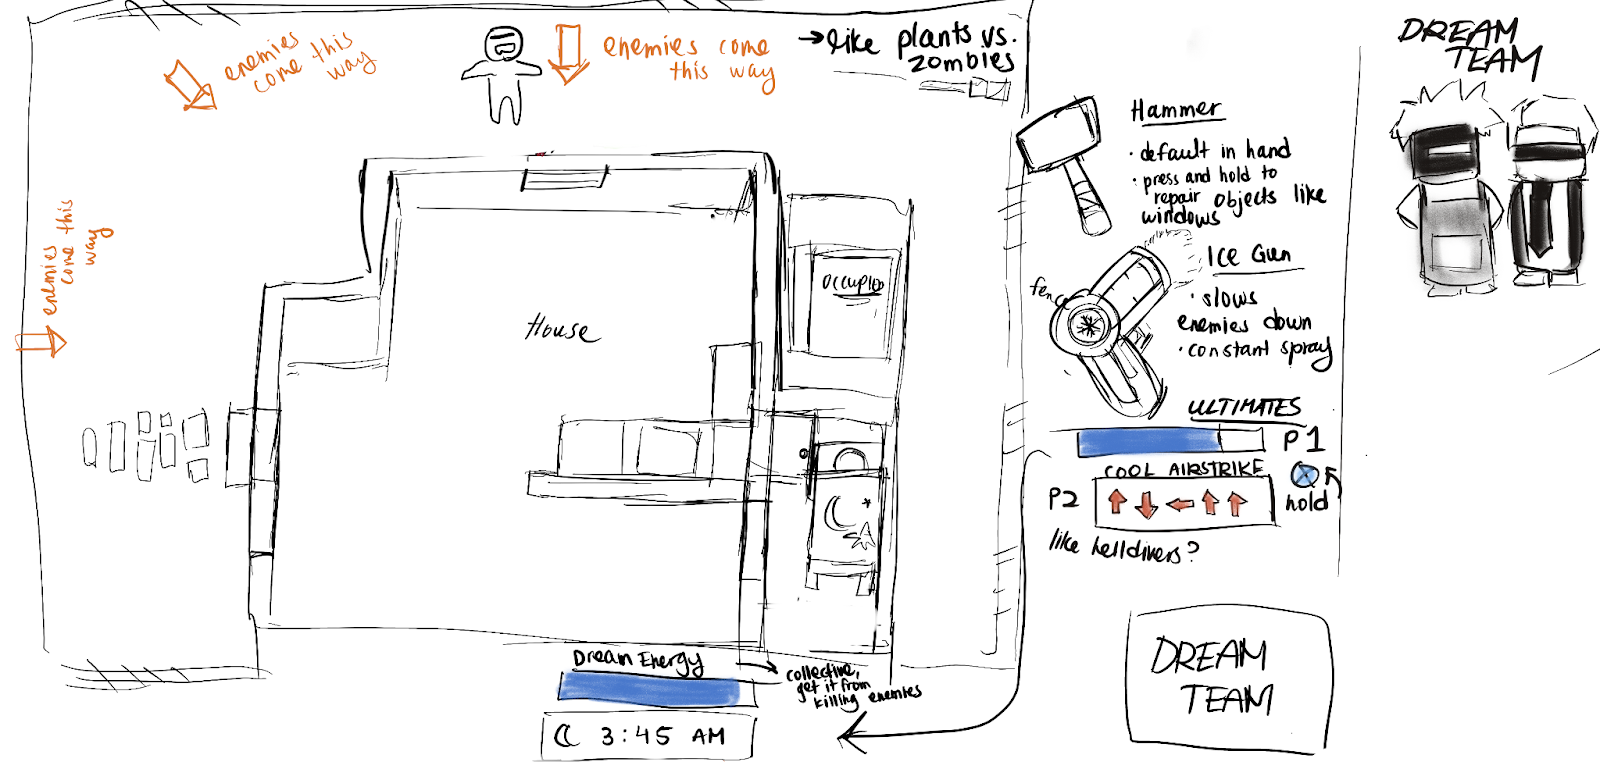 enemies
come this
way
enemies come
this way
→like plants vs.
zombies
DREAM
TEAM
Hammer
· default in hand
· press and hold to
repair objects like
windows
enemies
come this
way
House
OCCUPIED
fence
Ice Gun
· slows
enemies down
· constant spray
ULTIMATES
P1
COOL AIRSTRIKE
P2
↑ ↓ ← ↑ ↑
hold
like helldivers?
Dream Energy
collective,
get it from
killing enemies
3:45 AM
DREAM
TEAM